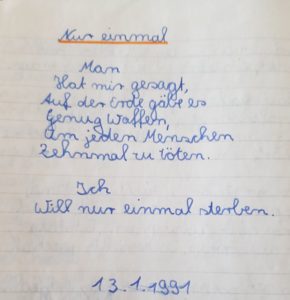 Nur einmal
Man
Hat mir gesagt,
Auf der Erde gäbe es
Genug Waffen,
Um jeden Menschen
Zehnmal zu töten.
Ich
Will nur einmal sterben.
13.1.1991